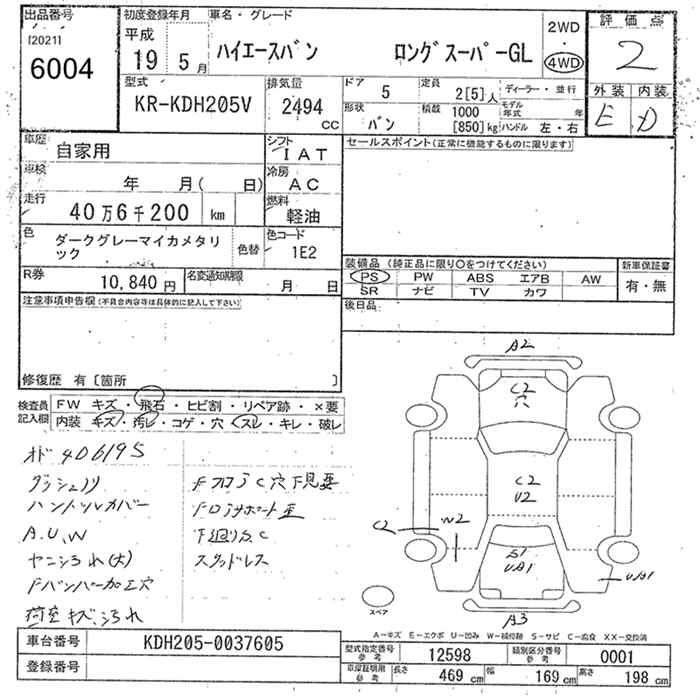 出品番号
[2021]
6004
初度登録年月
平成
19年 5月
車名・グレード
ハイエースバン ロングスーパーGL
2WD
・
4WD
評価点
2
外装 内装
E D
型式
KR-KDH205V
排気量
2494 cc
ドア 5
定員 2[5]人
ディーラー・並行
形状 バン
積載 1000 [850]kg
モデル年式 年
ハンドル 左・右
車歴
自家用
シフト
IAT
セールスポイント(正常に機能するものに限ります)
車検
年 月( 日)
冷房
AC
走行
40万6千200 km
燃料
軽油
色
ダークグレーマイカメタリック
色替
色コード
1E2
R券
10,840円
名変通知期限
月 日
装備品(純正品に限り○をつけてください)
PS PW ABS エアB AW
SR ナビ TV カワ
新車保証書
有・無
後日品
注意事項申告欄(不具合内容等は具体的に記入して下さい)
修復歴 有[箇所 ]
検査員記入欄
FW キズ・飛石・ヒビ割・リペア跡・×要
内装 キズ・汚レ・コゲ・穴・スレ・キレ・破レ
オド 406195
ハンドルカバー
A.U.W
Fバンパー加工穴
スタッドレス
A2
C2
穴
C2
U2
C2
W2
S1
UA1
UA1
A3
スペア
A-キズ E-エクボ U-凹み W-補修跡 S-サビ C-腐食 XX-交換済
車台番号
KDH205-0037605
登録番号
型式指定番号 参考
12598
類別区分番号 参考
0001
車庫証明用 参考
長さ 469 cm
幅 169 cm
高さ 198 cm